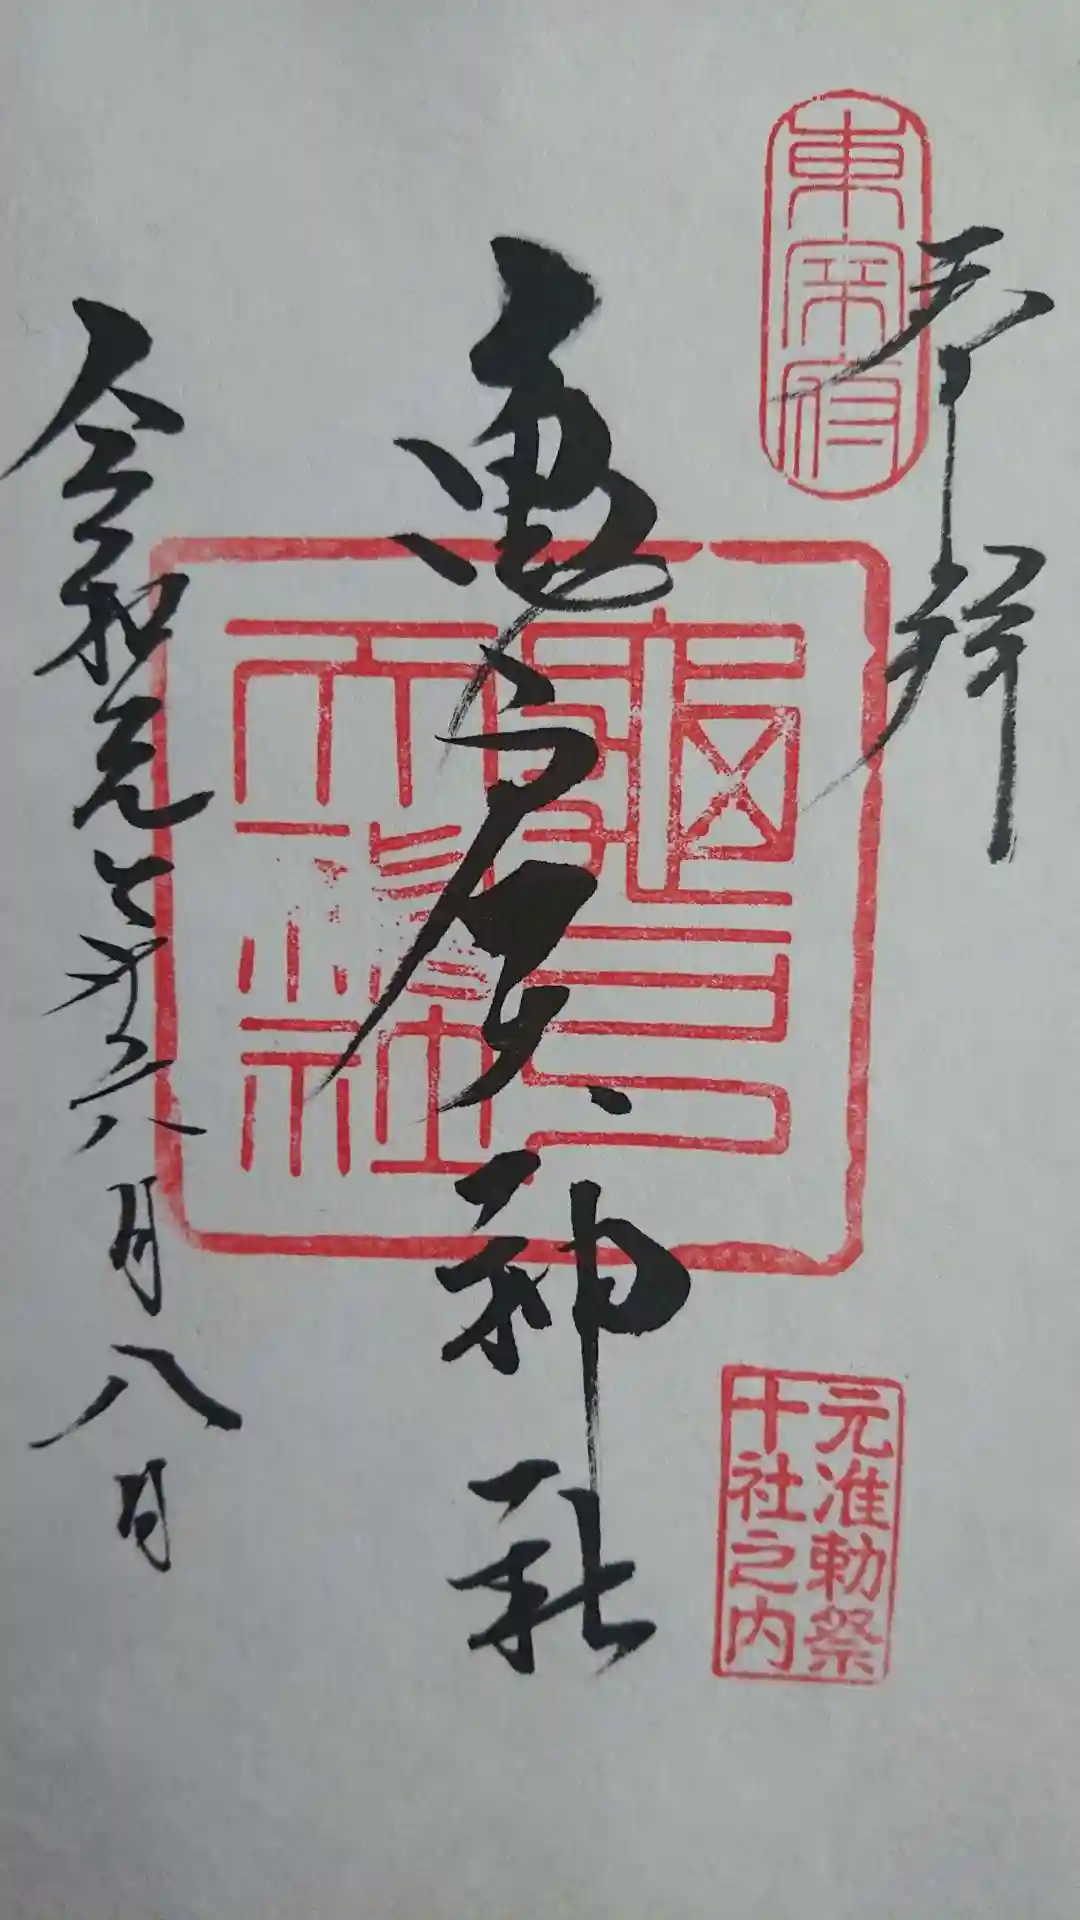 奉拝
東宰府
亀戸天神社
亀戸
天神社
元准勅祭
十社之内
令和元年六月八日